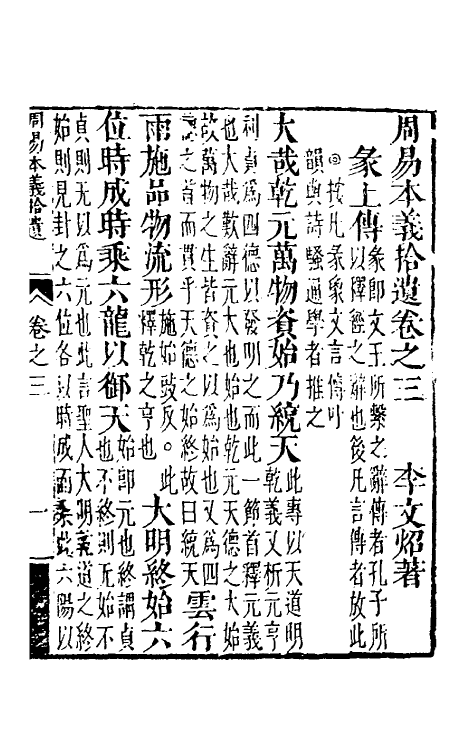 周易本義拾遺卷之三　李文炤著
彖上傳彖即文王所繫之辭傳者孔子所
以釋經之辭也後凡言傳者放此
◎按凡彖象文言傳叶
韻與詩騷通學者推之
大哉乾元萬物資始乃統天此專以天道明
乾義又析元亨
利貞爲四德以發明之而此一節首釋元義
也大哉歎辭元大也始也乾元天德之大始
故萬物之生皆資之以爲始也又爲四
德之首而貫乎天德之始終故曰統天雲行
雨施品物流形施始豉反。此
釋乾之亨也大明終始六
位時成時乘六龍以御天始即元也終謂貞
也不終則无始不
貞則无以爲元也此言聖人大明義道之終
始則見卦之六位各以時成而乘此六陽以
周易本義拾遺　卷之三　一